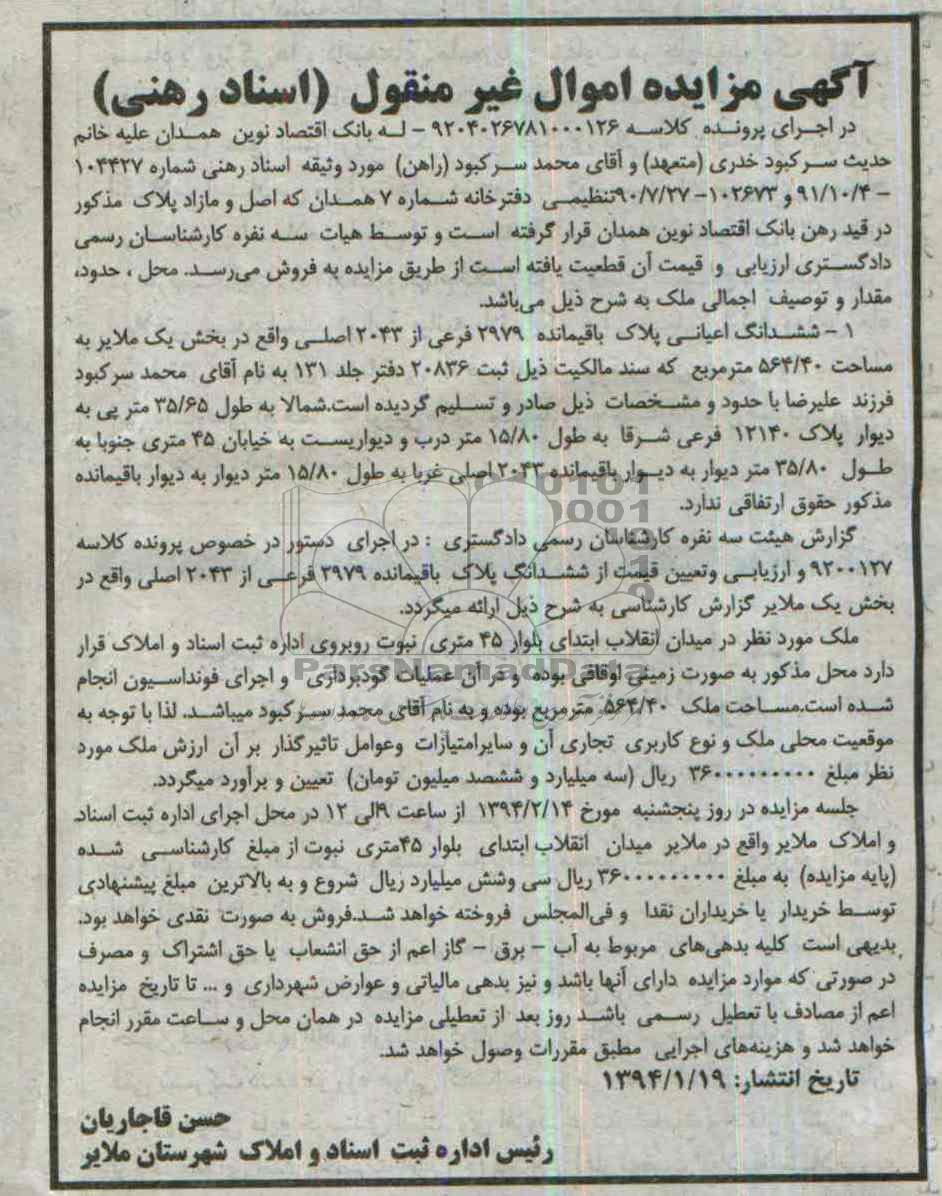 آگهی مزایده اموال غیر منقول (اسناد رهنی)
در اجرای پرونده کلاسه ۹۲۰۴۰۲۶۷۸۱۰۰۰۱۲۶ - له بانک اقتصاد نوین همدان علیه خانم
حدیث سرکبود خدری (متعهد) و آقای محمد سرکبود (راهن) مورد وثیقه اسناد رهنی شماره ۱۰۴۴۲۷
- ۹۱/۱۰/۴ و ۱۰۲۶۷۳- ۹۰/۷/۲۷تنظیمی دفترخانه شماره ۷ همدان که اصل و مازاد پلاک مذکور
در قید رهن بانک اقتصاد نوین همدان قرار گرفته است و توسط هیات سه نفره کارشناسان رسمی
دادگستری ارزیابی و قیمت آن قطعیت یافته است از طریق مزایده به فروش می‌رسد. محل ، حدود،
مقدار و توصیف اجمالی ملک به شرح ذیل می‌باشد.
۱ - ششدانگ اعیانی پلاک باقیمانده ۲۹۷۹ فرعی از ۲۰۴۳ اصلی واقع در بخش یک ملایر به
مساحت ۵۶۴/۴۰ مترمربع که سند مالکیت ذیل ثبت ۲۰۸۳۶ دفتر جلد ۱۳۱ به نام آقای محمد سرکبود
فرزند علیرضا با حدود و مشخصات ذیل صادر و تسلیم گردیده است.شمالا به طول ۳۵/۶۵ متر پی به
دیوار پلاک ۱۲۱۴۰ فرعی شرقا به طول ۱۵/۸۰ متر درب و دیواریست به خیابان ۴۵ متری جنوبا به
طول ۳۵/۸۰ متر دیوار به دیوار باقیمانده ۲۰۴۳ اصلی غربا به طول ۱۵/۸۰ متر دیوار به دیوار باقیمانده
مذکور حقوق ارتفاقی ندارد.
گزارش هیئت سه نفره کارشناسان رسمی دادگستری : در اجرای دستور در خصوص پرونده کلاسه
۹۲۰۰۱۲۷ و ارزیابی وتعیین قیمت از ششدانگ پلاک باقیمانده ۲۹۷۹ فرعی از ۲۰۴۳ اصلی واقع در
بخش یک ملایر گزارش کارشناسی به شرح ذیل ارائه میگردد.
ملک مورد نظر در میدان انقلاب ابتدای بلوار ۴۵ متری نبوت روبروی اداره ثبت اسناد و املاک قرار
دارد محل مذکور به صورت زمینی اوقافی بوده و در آن عملیات گودبرداری و اجرای فونداسیون انجام
شده است.مساحت ملک ۵۶۴/۴۰ مترمربع بوده و به نام آقای محمد سرکبود میباشد. لذا با توجه به
موقعیت محلی ملک و نوع کاربری تجاری آن و سایرامتیازات وعوامل تاثیرگذار بر آن ارزش ملک مورد
نظر مبلغ ۳۶۰۰۰۰۰۰۰۰۰ ریال (سه میلیارد و ششصد میلیون تومان) تعیین و برآورد میگردد.
جلسه مزایده در روز پنجشنبه مورخ ۱۳۹۴/۲/۱۴ از ساعت ۹الی ۱۲ در محل اجرای اداره ثبت اسناد
و املاک ملایر واقع در ملایر میدان انقلاب ابتدای بلوار ۴۵متری نبوت از مبلغ کارشناسی شده
(پایه مزایده) به مبلغ ۳۶۰۰۰۰۰۰۰۰۰ ریال سی وشش میلیارد ریال شروع و به بالاترین مبلغ پیشنهادی
توسط خریدار یا خریداران نقدا و فی‌المجلس فروخته خواهد شد.فروش به صورت نقدی خواهد بود.
بدیهی است کلیه بدهی‌های مربوط به آب - برق - گاز اعم از حق انشعاب یا حق اشتراک و مصرف
در صورتی که موارد مزایده دارای آنها باشد و نیز بدهی مالیاتی و عوارض شهرداری و ... تا تاریخ مزایده
اعم از مصادف با تعطیل رسمی باشد روز بعد از تعطیلی مزایده در همان محل و ساعت مقرر انجام
خواهد شد و هزینه‌های اجرایی مطبق مقررات وصول خواهد شد.
تاریخ انتشار: ۱۳۹۴/۱/۱۹
حسن قاجاریان
رئیس اداره ثبت اسناد و املاک شهرستان ملایر
ParsNamadData